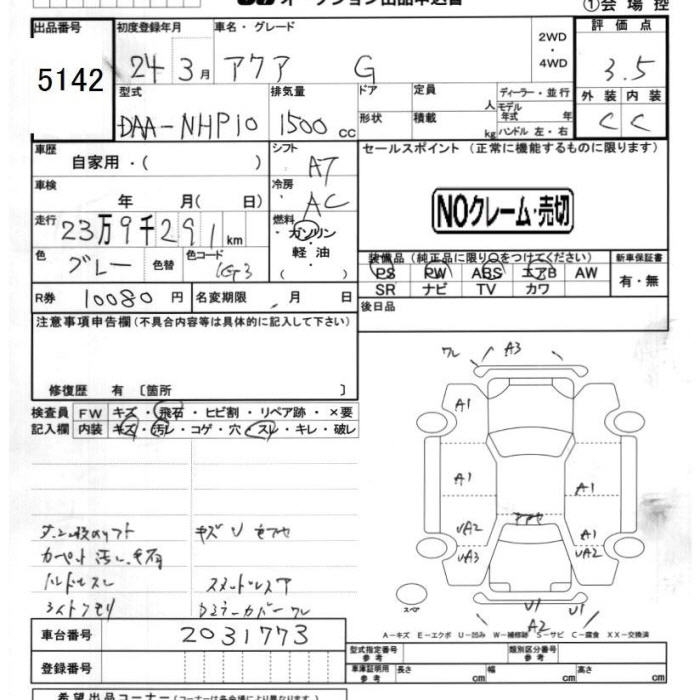 オークション出品申込書
①会場控
出品番号 初度登録年月 車名・グレード 評価点
5142 24年3月 アクア G 2WD・4WD 3.5
型式 排気量 ドア 定員 人 ディーラー・並行 外装 内装
DAA-NHP10 1500cc 形状 積載 kg モデル年式 年 ハンドル 左・右 C C
車歴 自家用・( ) シフト AT セールスポイント (正常に機能するものに限ります)
車検 年 月( 日) 冷房 AC
NOクレーム・売切
走行 23万9千291km 燃料 ・ガソリン
・軽油
( )
色 グレー 色替 色コード 1G3
装備品 (純正品に限り○をつけてください) 新車保証書
PS PW ABS エアB AW 有・無
SR ナビ TV カワ
R券 10080円 名変期限 月 日 後日品
注意事項申告欄 (不具合内容等は具体的に記入して下さい)
修復歴 有 〔箇所 〕
検査員 FW キズ・飛石・ヒビ割・リペア跡・×要
記入欄 内装 キズ・汚レ・コゲ・穴・スレ・キレ・破レ
ワレ A3
A1
A1 A1
UA2 A1
UA2
UA3
スペア
U1 U1
A2
キズ U
カーペット汚レ
ハンドルスレ
ライトクモリ カバーワレ
A-キズ E-エクボ U-凹み W-補修跡 S-サビ C-腐食 XX-交換済
車台番号 2031773
登録番号
型式指定番号 参考 類別区分番号 参考
車庫証明用 参考 長さ cm 幅 cm 高さ cm
希望出品コーナー (コーナーは各会場により異なります)